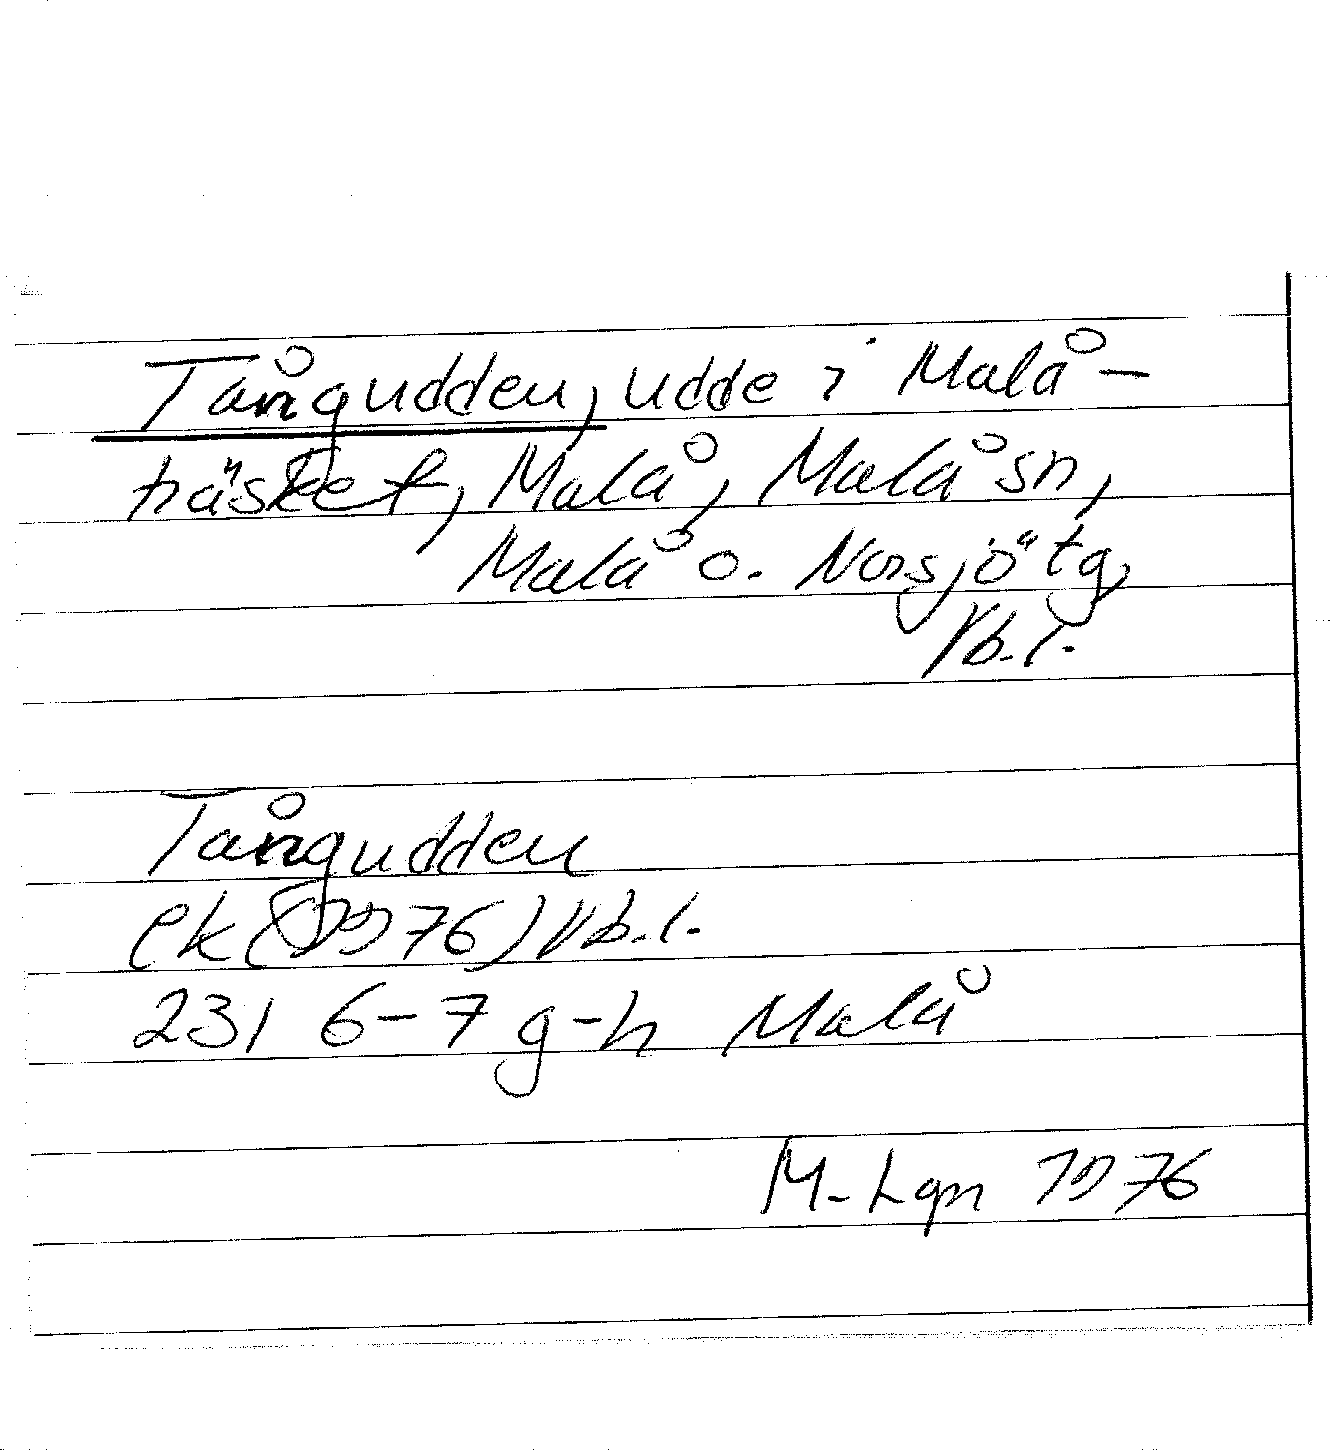 Tångudden, udde i Malå-
träsket, Malå, Malå sn,
Malå o. Norsjö tg,
Vb.l.
Tångudden
ek (1976) Vb.l.
231 6-7 g-h Malå
M. Lgn 1976